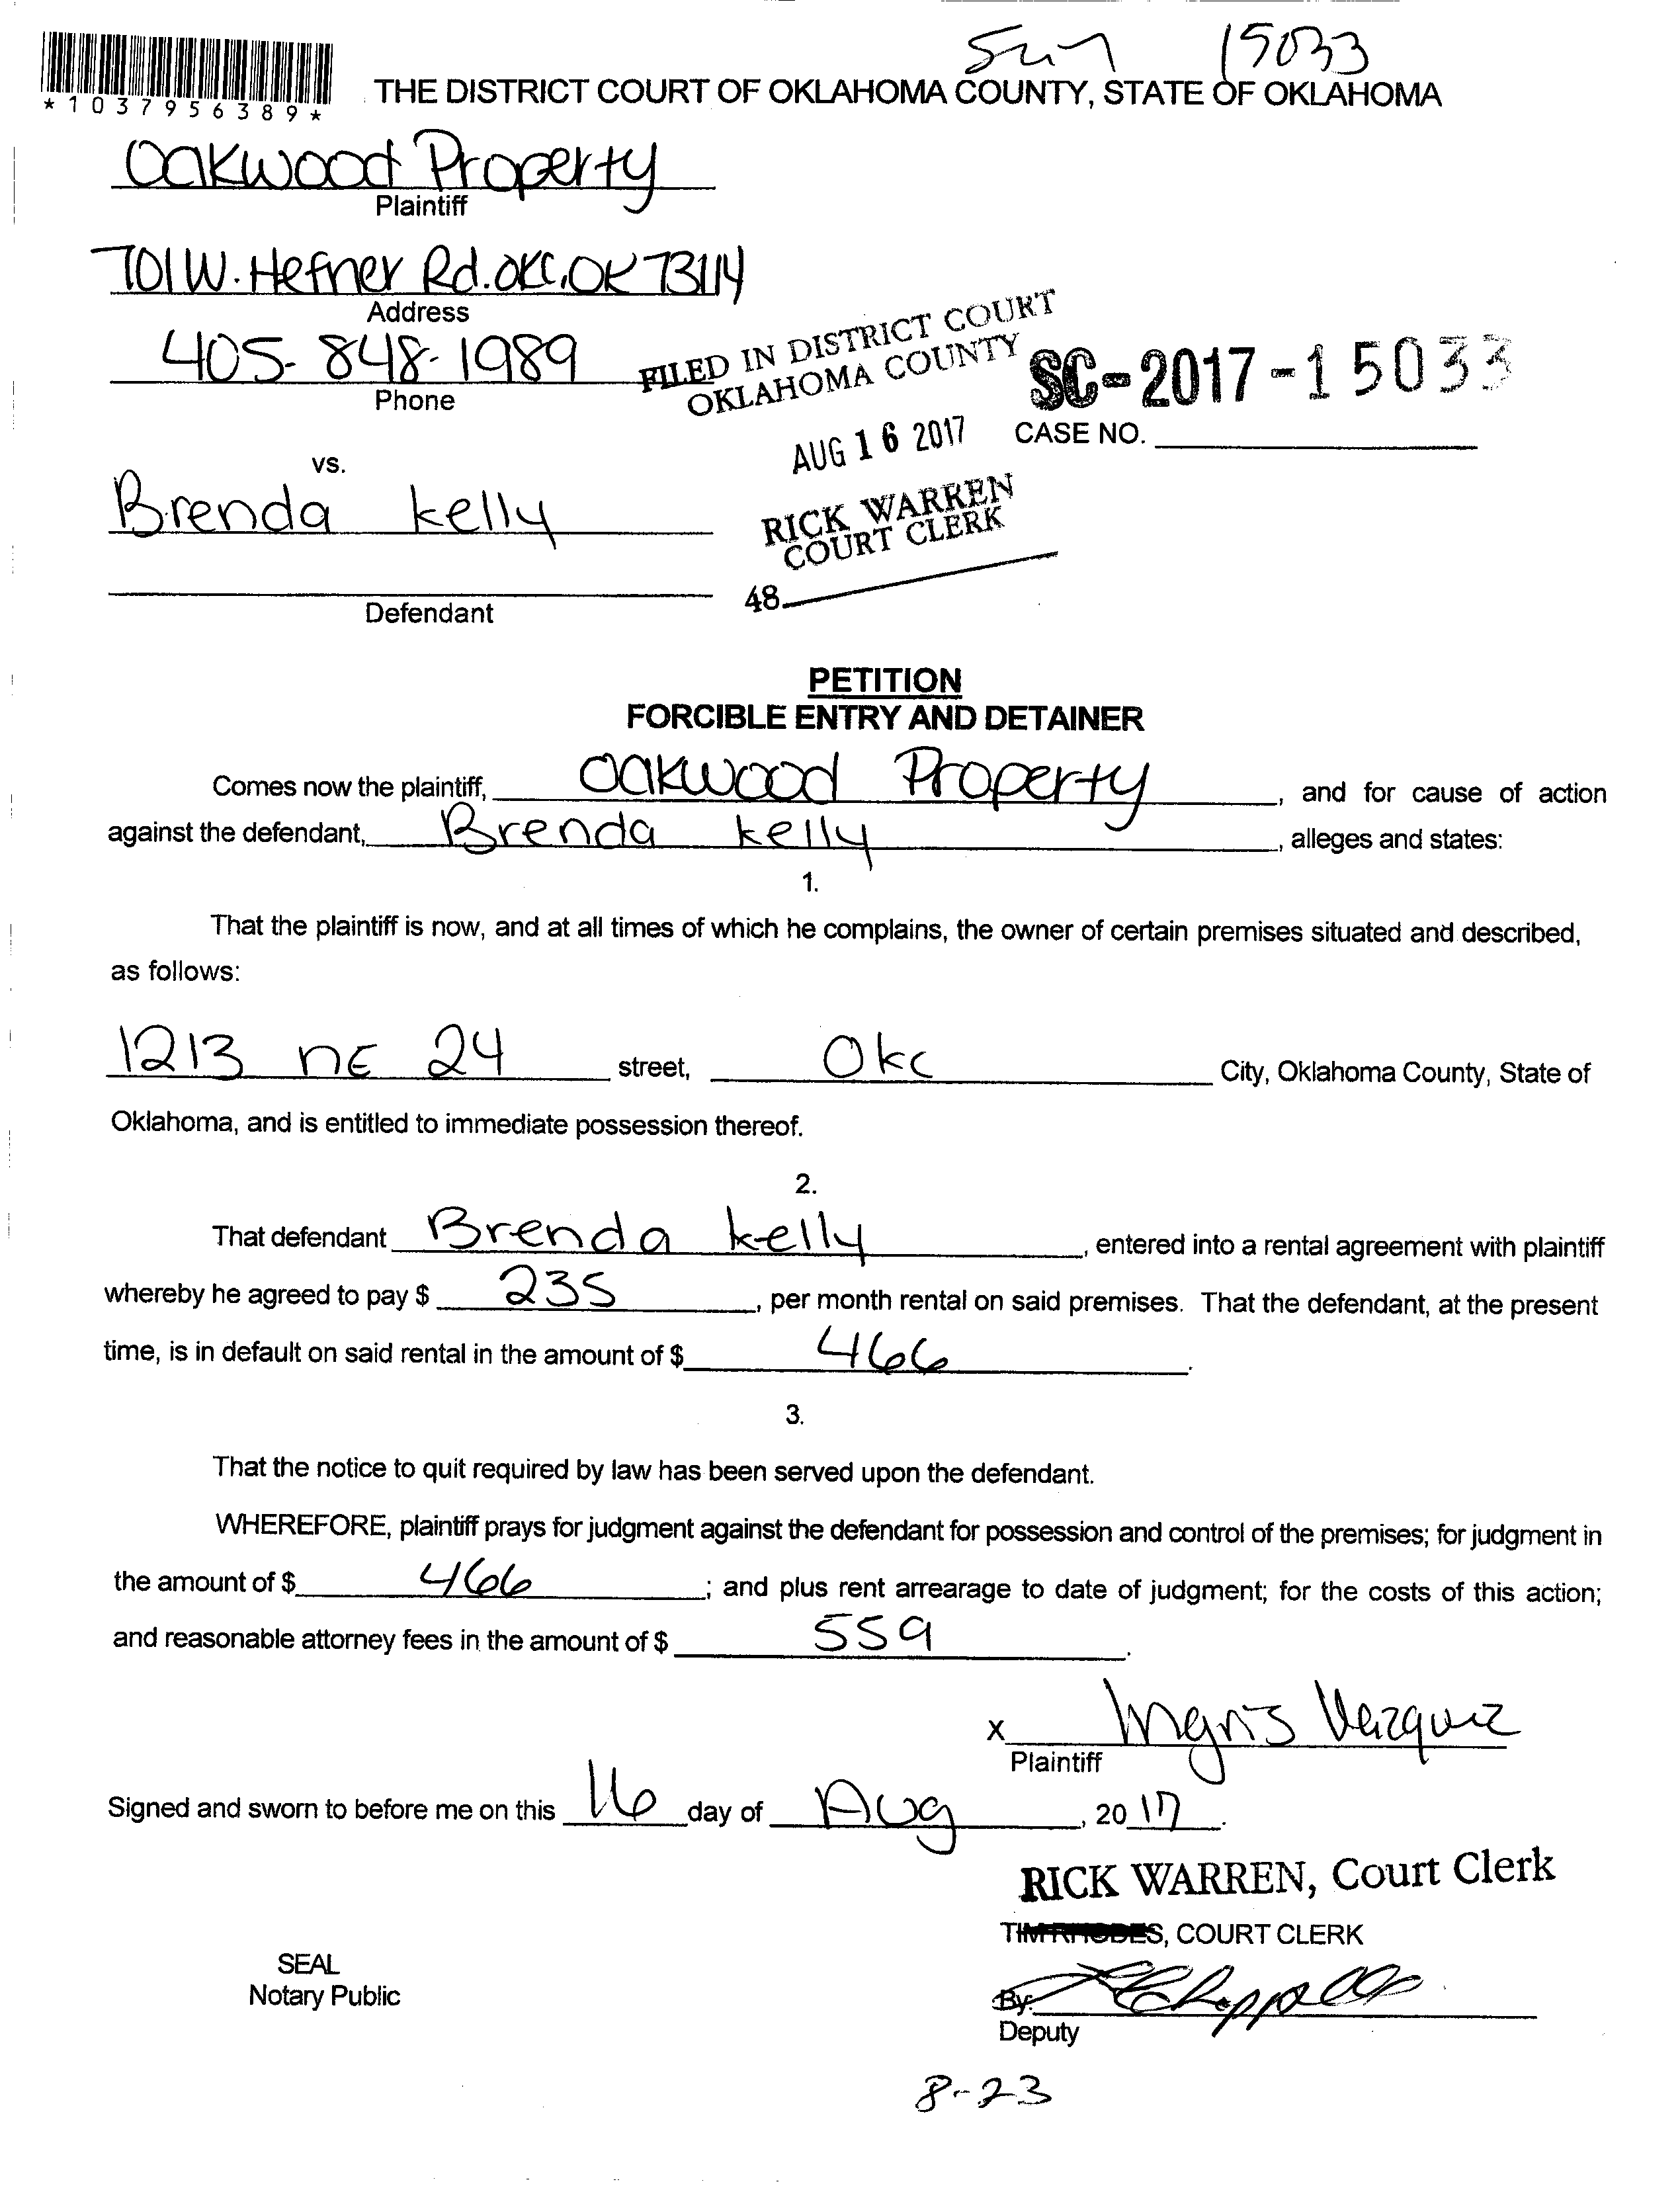 15033
*1037956389*
THE DISTRICT COURT OF OKLAHOMA COUNTY, STATE OF OKLAHOMA
Oakwood Property
Plaintiff
701 W. Hefner Rd. OKC, OK 73114
Address
405-848-1989
Phone
FILED IN DISTRICT COURT
OKLAHOMA COUNTY
SC-2017-15033
AUG 16 2017
CASE NO.
vs.
Brenda Kelly
RICK WARREN
COURT CLERK
48
Defendant
PETITION
FORCIBLE ENTRY AND DETAINER
Comes now the plaintiff, Oakwood Property, and for cause of action
against the defendant, Brenda Kelly, alleges and states:
1.
That the plaintiff is now, and at all times of which he complains, the owner of certain premises situated and described,
as follows:
1213 NE 24 street, Okc City, Oklahoma County, State of
Oklahoma, and is entitled to immediate possession thereof.
2.
That defendant Brenda Kelly, entered into a rental agreement with plaintiff
whereby he agreed to pay $ 235, per month rental on said premises. That the defendant, at the present
time, is in default on said rental in the amount of $ 466.
3.
That the notice to quit required by law has been served upon the defendant.
WHEREFORE, plaintiff prays for judgment against the defendant for possession and control of the premises; for judgment in
the amount of $ 466; and plus rent arrearage to date of judgment; for the costs of this action;
and reasonable attorney fees in the amount of $ 559.
X Ingris Vazquez
Plaintiff
Signed and sworn to before me on this 16 day of Aug, 2017.
RICK WARREN, Court Clerk
TIM RHODES, COURT CLERK
SEAL
Notary Public
By:
Deputy
8-23